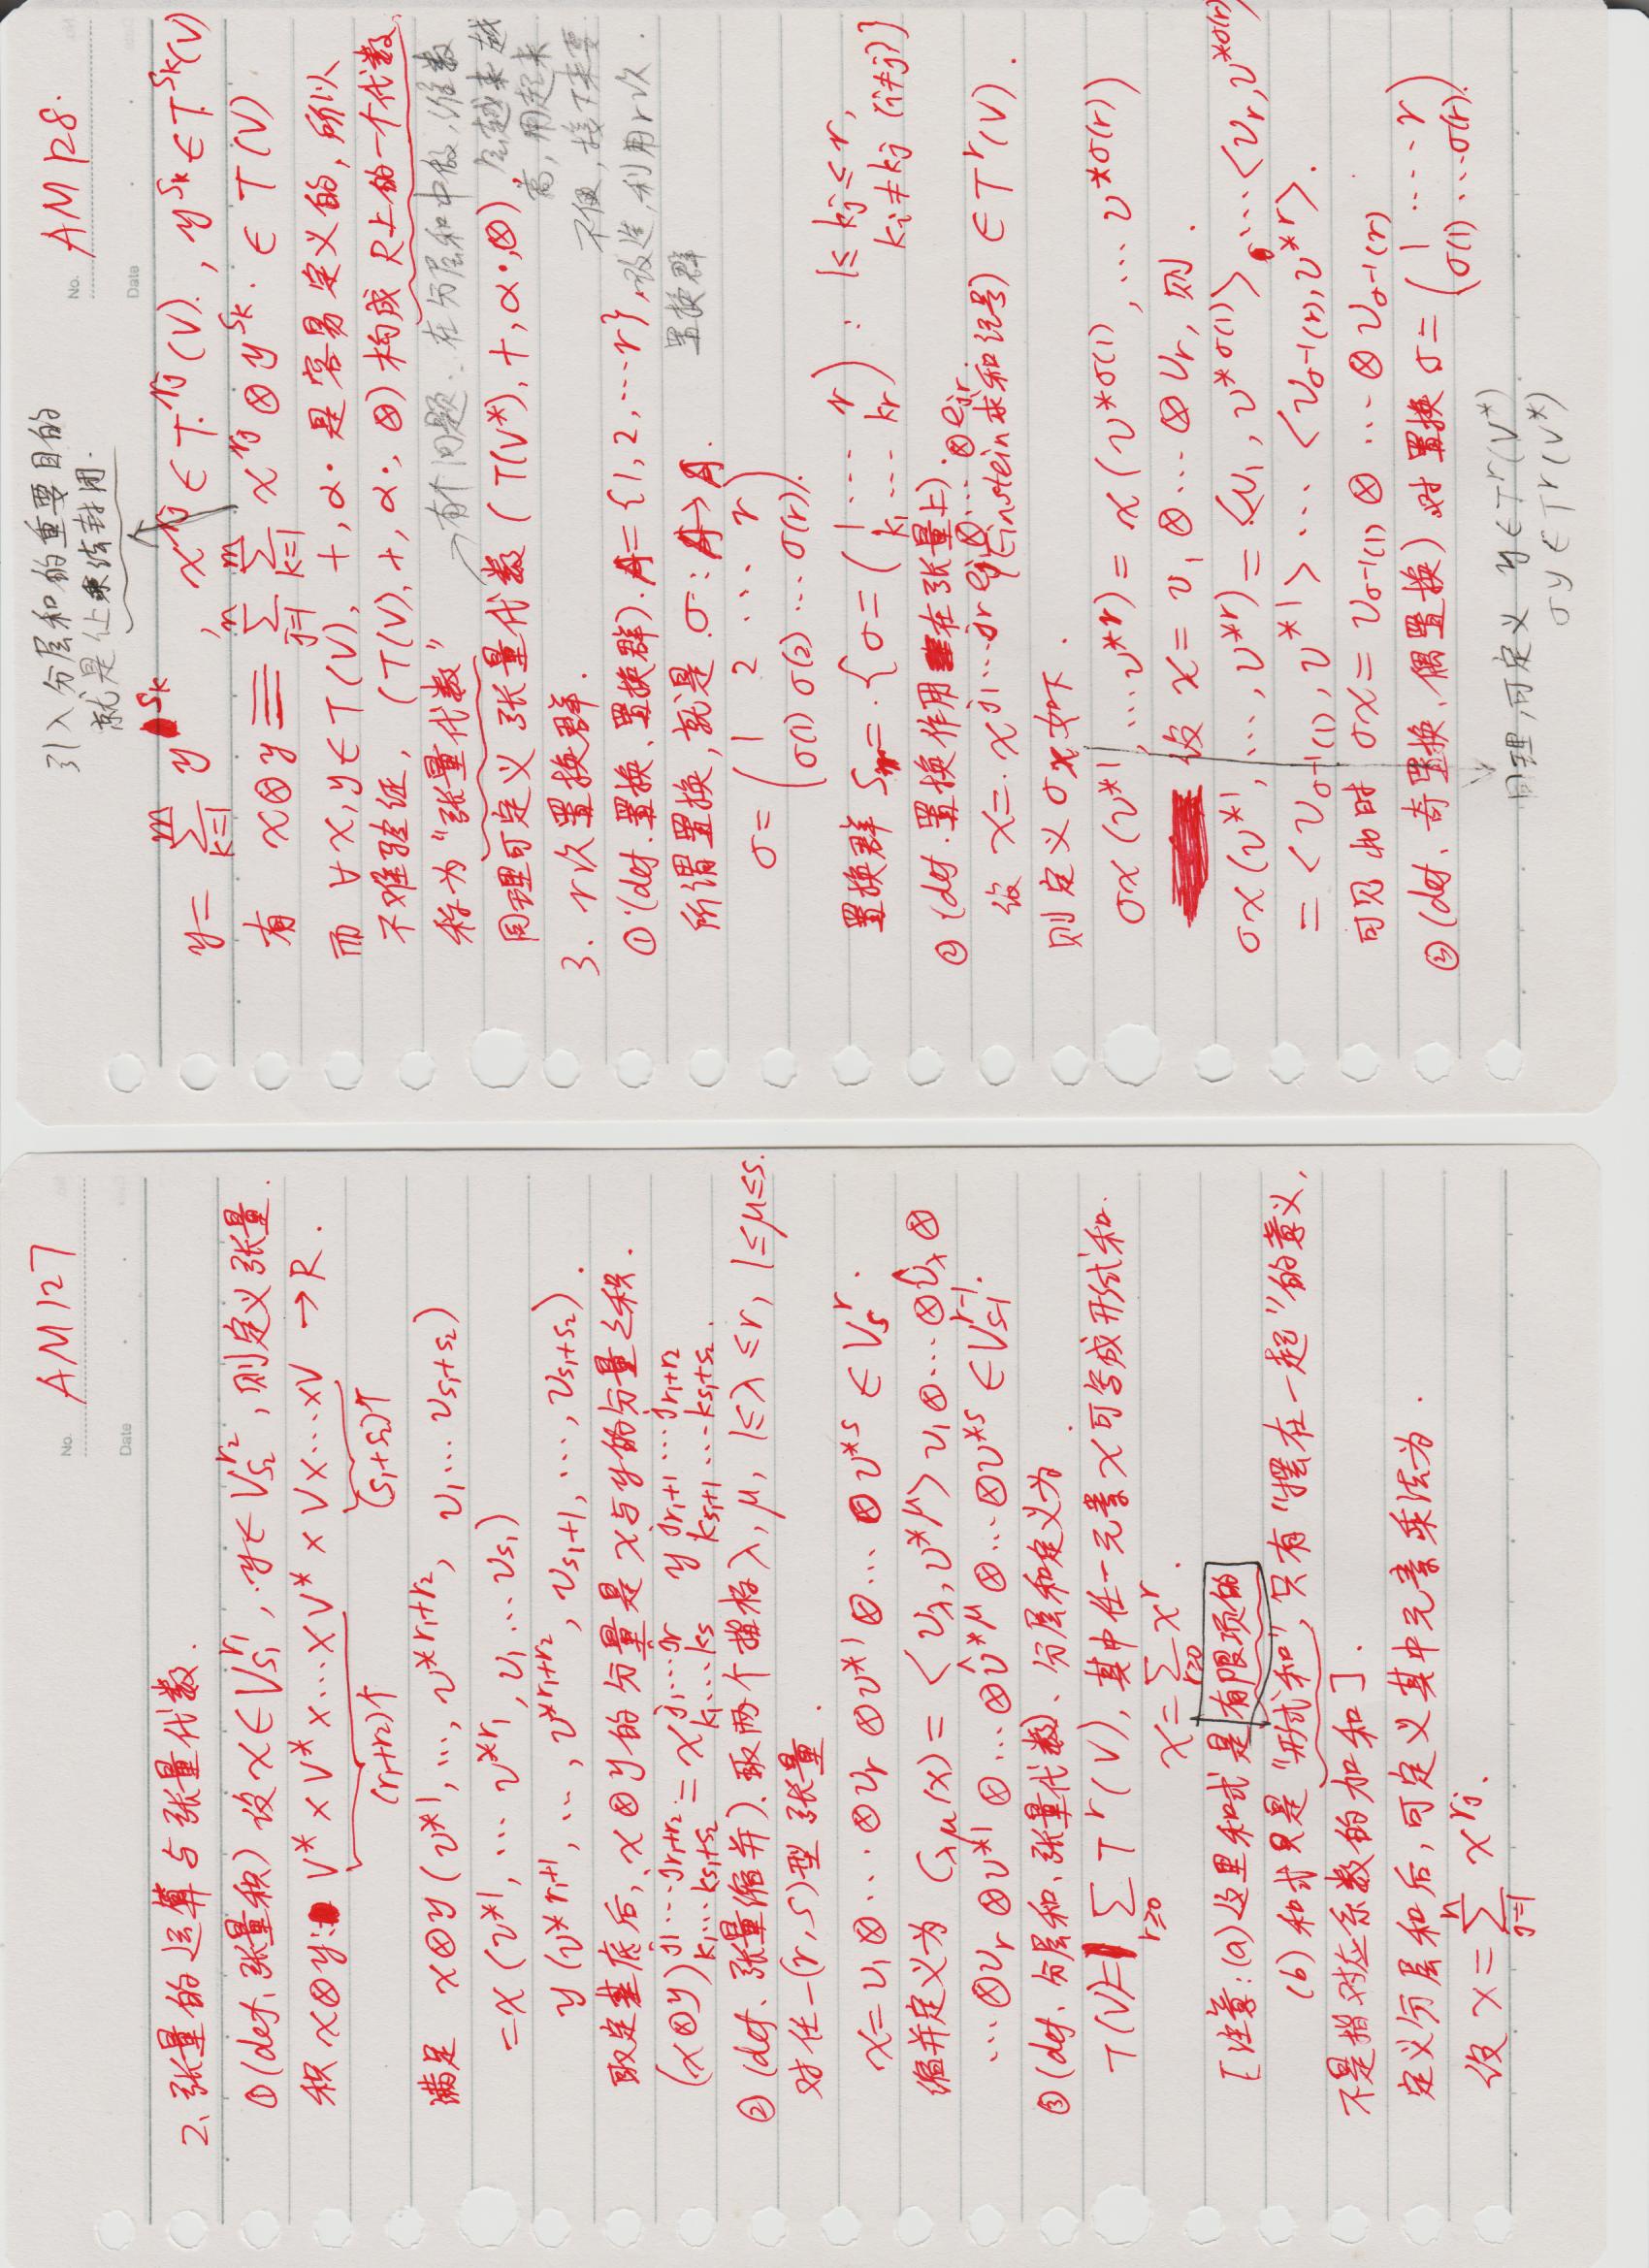 No. AM127
Date
2、张量的运算与张量代数.
①(def、张量积) 设 x∈V_{s₁}^{r₁}, y∈V_{s₂}^{r₂}, 则定义张量
积 x⊗y: V*×V*×…×V* × V×…×V → R.
(r₁+r₂)个 (s₁+s₂)个
满足 x⊗y(v^{*1}, …, v^{*r₁+r₂}, v₁…v_{s₁+s₂})
=x(v^{*1}, … v^{*r₁}, v₁…v_{s₁})
y(v^{*r₁+1}, …, v^{*r₁+r₂}, v_{s₁+1}, …, v_{s₁+s₂}).
取定基底后, x⊗y的分量是x与y的分量之积.
(x⊗y)^{j₁…j_{r₁+r₂}}_{k₁…k_{s₁+s₂}} = x^{j₁…j_r}_{k₁…k_s} y^{j_{r₁+1}…j_{r₁+r₂}}_{k_{s₁+1}…k_{s₁+s₂}}.
②(def、张量缩并)、取两个指标λ, μ, 1≤λ≤r, 1≤μ≤s.
对任一(r,s)型张量.
x=v₁⊗…⊗v_r⊗v^{*1}⊗…⊗v^{*s}∈V_s^r.
缩并定义为 C_{λμ}(x)=<v_λ, v^{*μ}>v₁⊗…⊗v̂_λ⊗
…⊗v_r⊗v^{*1}⊗…⊗v̂^{*μ}⊗…⊗v^{*s}∈V_{s-1}^{r-1}.
③(def、分层和、张量代数)、分层和定义为
T(V)=∑_{r≥0} T^r(V), 其中任一元素x可写成形式和.
x=∑_{r≥0} x^r.
[注意:(a)这里和式是有限项的
(b)和式只是“形式和”,只有“摆在一起”的意义,
不是指对应系数的加和].
定义分层和后,可定义其中元素乘法为.
设 x=∑_{j=1}^n x^{r_j}.
No. AM128.
Date
引入分层和的重要目的
就是让乘法封闭.
y=∑_{k=1}^m y^{s_k}, x^{r_j}∈T^{r_j}(V)., y^{s_k}∈T^{s_k}(V)
有 x⊗y≡∑_{j=1}^n ∑_{k=1}^m x^{r_j}⊗y^{s_k}. ∈T(V)
而 ∀x,y∈T(V), +, α· 是容易定义的,所以
不难验证, (T(V), +, α·, ⊗)构成 R上的一个代数,
称为“张量代数”
有个问题: 在分层和中做,维数
会越来越
高,用起来
不便,接下来要
改造,利用r次
置换群
同理可定义 张量代数(T(V*), +, α·, ⊗)
3. r次置换群.
①(def.置换、置换群). A={1,2,…r},
所谓置换,就是 σ: A→A.
σ=(1 2 … r
σ(1) σ(2) … σ(r)).
置换群 S_r=.{σ=(1 … r
k₁ … k_r) : 1≤k_j≤r,
k_i≠k_j (i≠j)}
②(def.置换作用在张量上).
设 x=x^{j₁…j_r} e_{j₁}⊗…⊗e_{j_r}. (Einstein求和记号) ∈T^r(V).
则定义σx如下.
σx(v^{*1}, …v^{*r})=x(v^{*σ(1)}, …v^{*σ(r)})
设 x=v₁⊗…⊗v_r, 则.
σx(v^{*1}, …, v^{*r})=<v₁, v^{*σ(1)}>…<v_r, v^{*σ(r)}
=<v_{σ^{-1}(1)}, v^{*1}>…<v_{σ^{-1}(r)}, v^{*r}>.
可见此时 σx=v_{σ^{-1}(1)}⊗…⊗v_{σ^{-1}(r)}
③(def、奇置换、偶置换)、对置换 σ=(1 … r
σ(1) … σ(r)).
同理,可定义 y∈T^r(V*)
σy∈T^r(V*)